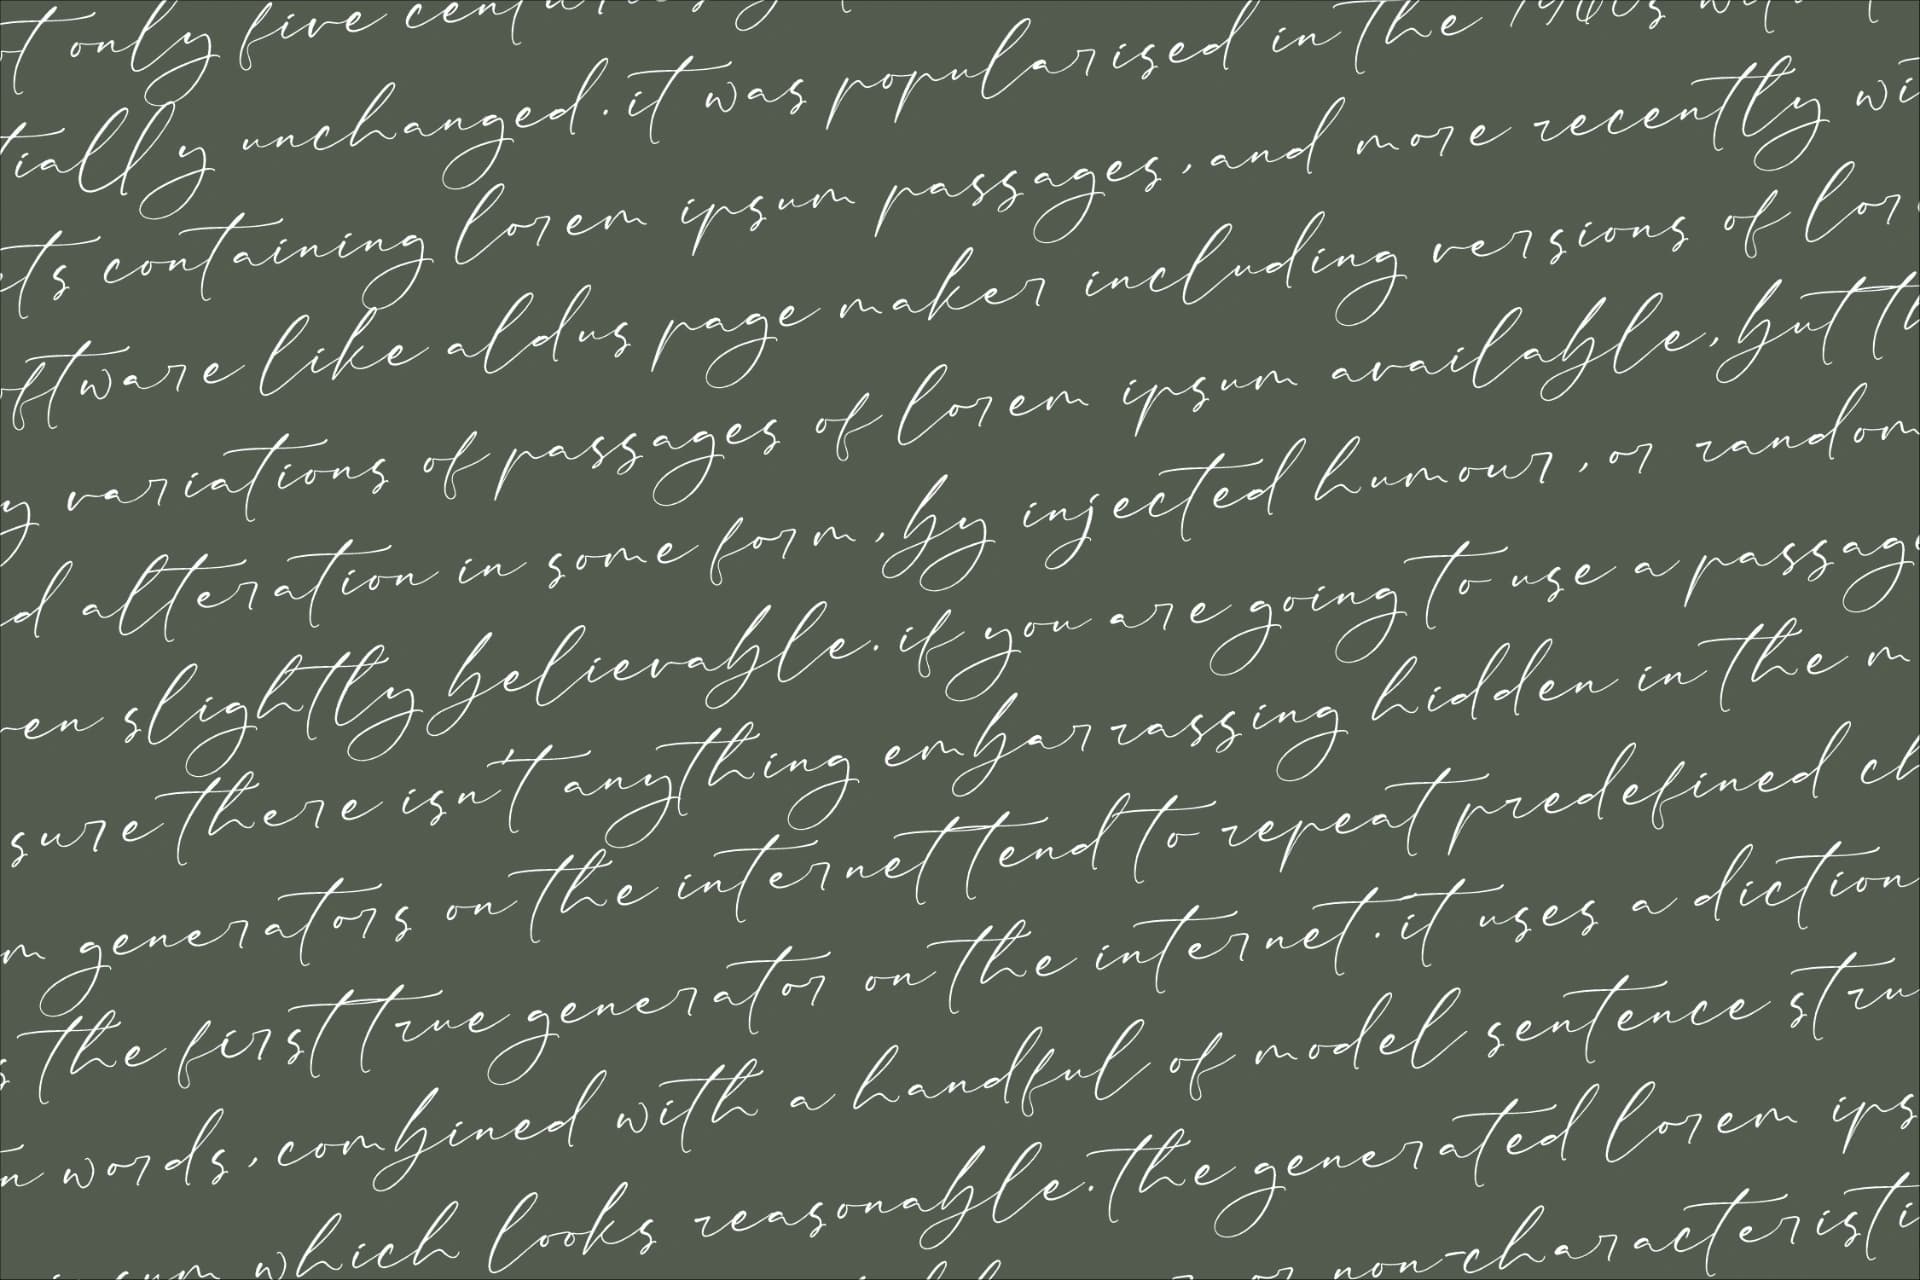 only five
tially unchanged. it was popularised in the 1960s
ets containing lorem ipsum passages, and more recently wi
oftware like aldus page maker including versions of lor
y variations of passages of lorem ipsum available, but th
d alteration in some form, by injected humour, or random
en slightly believable. if you are going to use a passag
sure there isn't anything embarrassing hidden in the m
m generators on the internet tend to repeat predefined ch
s the first true generator on the internet. it uses a diction
n words, combined with a handful of model sentence stru
which looks reasonable. the generated lorem ips
or non-characteristi